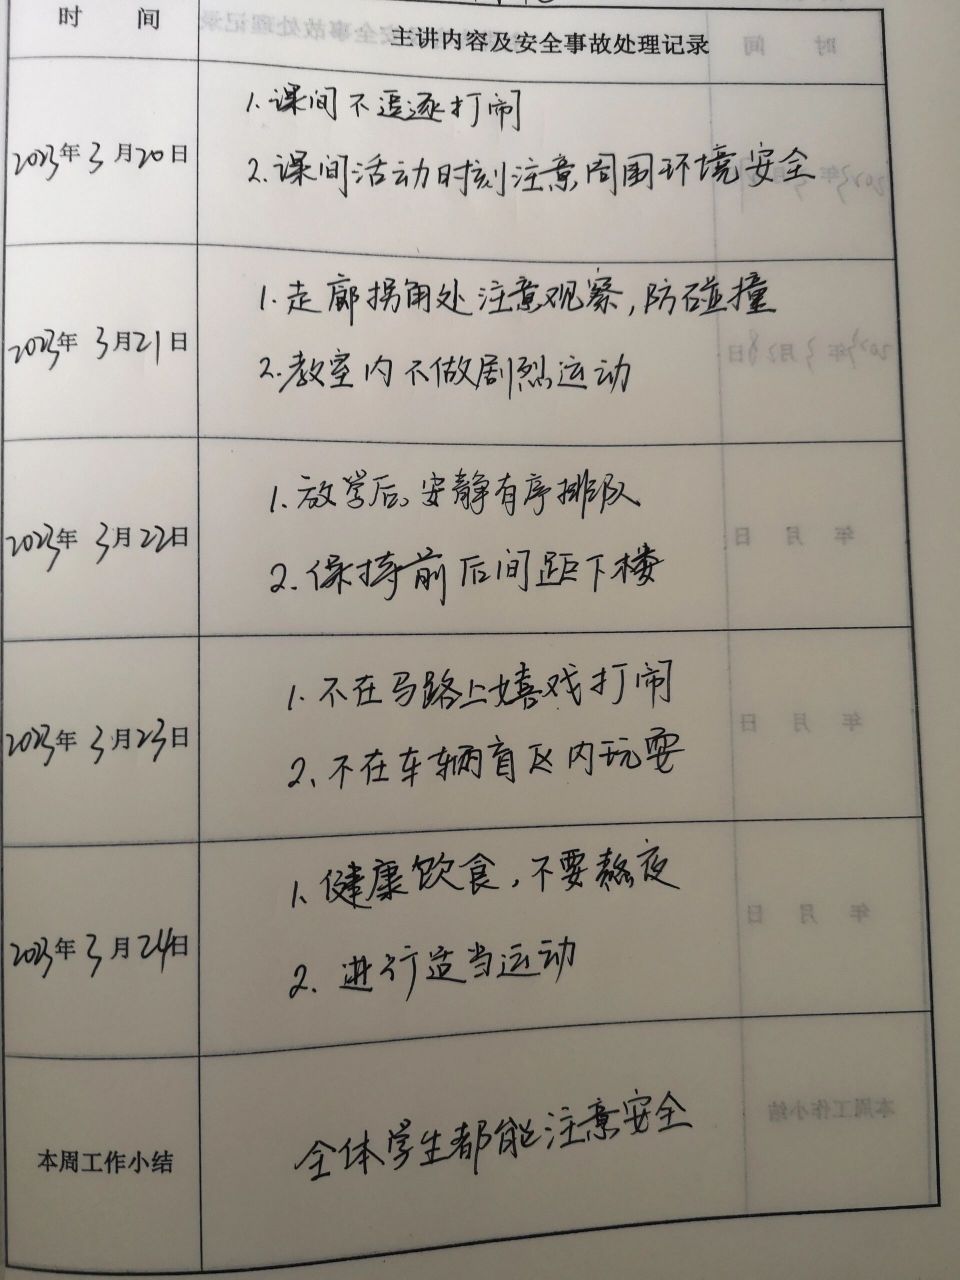 时 间 主讲内容及安全事故处理记录
1.课间不追逐打闹
2023年3月20日
2.课间活动时刻注意周围环境安全
1.走廊拐角处注意观察,防碰撞
2023年3月21日
2.教室内不做剧烈运动
1.放学后,安静有序排队
2023年3月22日
2.保持前后间距下楼
1.不在马路上嬉戏打闹
2023年3月23日
2、不在车辆盲区内玩耍
1.健康饮食,不要熬夜
2023年3月24日
2.进行适当运动
本周工作小结 全体学生都能注意安全